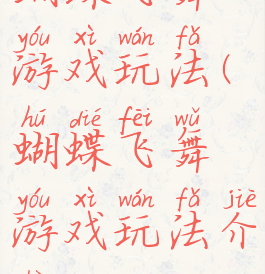 yóu xì wán fǎ
游戏玩法(
hú dié fēi wǔ
蝴蝶飞舞
yóu xì wán fǎ jiè
游戏玩法介